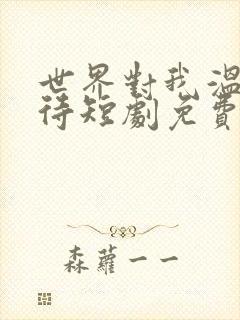 世界對我溫
待短劇免費
森蘿一一